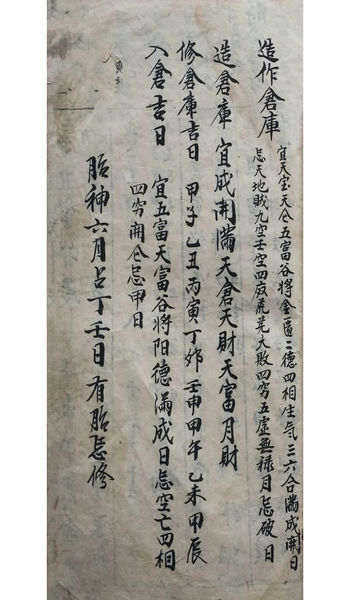 造作倉庫
宜天宝天仓五富谷将金匮二德四相生气三六合满成開日
忌天地贼九空壬空四废荒芜大败四穷五虚無禄月忌破日
造倉庫 宜成開满天倉天財天富月財
修倉庫吉日 甲子乙丑丙寅丁卯壬申甲午乙未甲辰
入倉吉日
宜五富天富谷将阳德满成日忌空亡四相
四穷開仓忌甲日
胎神六月占丁壬日有胎忌修